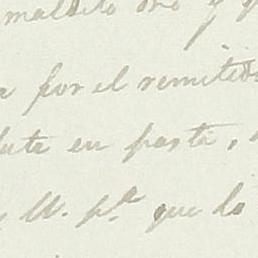 maldito oro y q
a por el remitido
lata en pasta,
y U. p.ª que lo